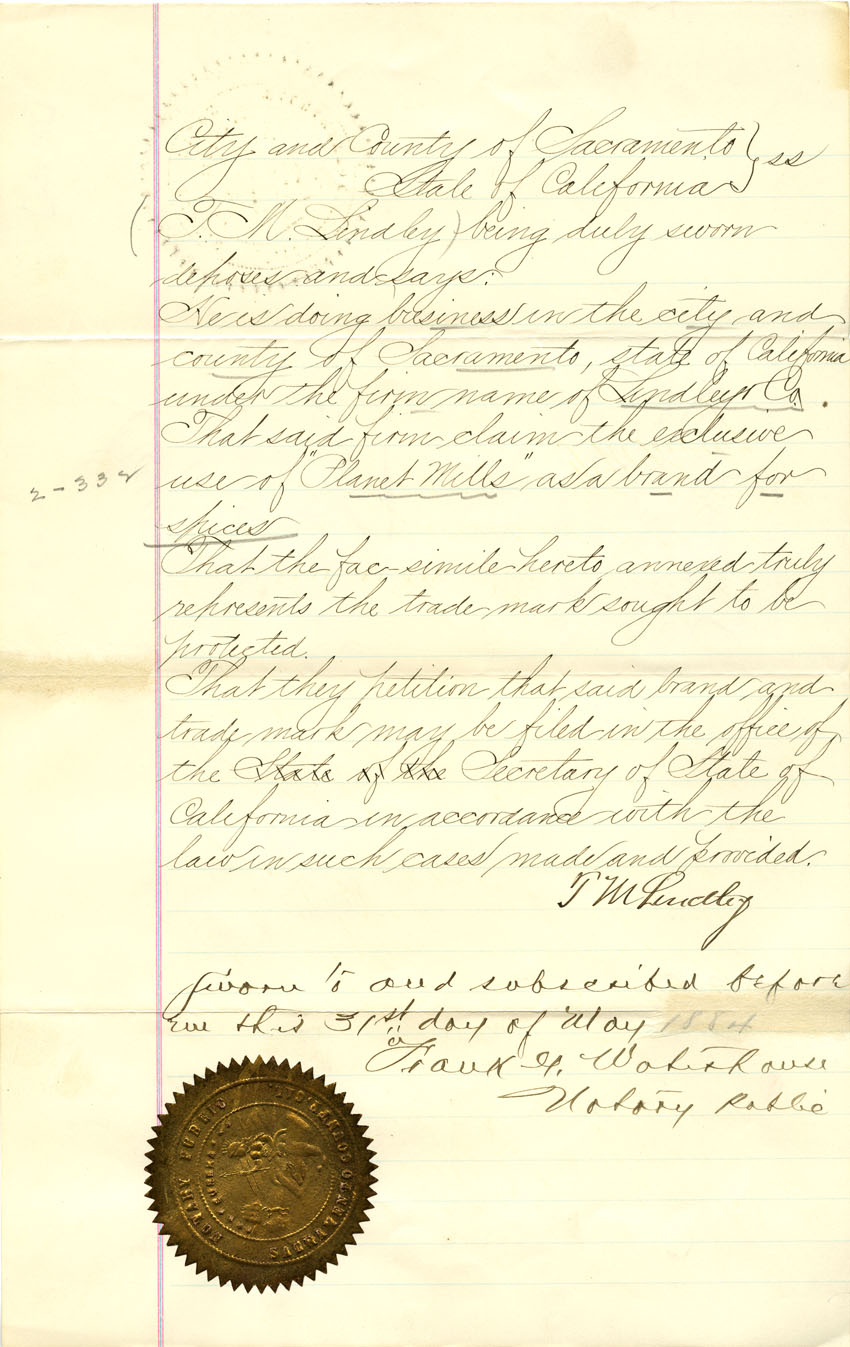 City and County of Sacramento } ss
State of California
(T. M. Lindley) being duly sworn
deposes and says:
He is doing business in the city and
county of Sacramento, state of California
under the firm name of Lindley & Co.
That said firm claim the exclusive
use of "Planet Mills" as a brand for
spices
2-332
That the fac-simile hereto annexed truly
represents the trade mark sought to be
protected.
That they petition that said brand and
trade mark may be filed in the office of
the State of the Secretary of State of
California in accordance with the
law in such cases made and provided.
T M Lindley
Sworn to and subscribed before
me this 31st day of May 1884
Frank G. Waterhouse
Notary Public
NOTARY PUBLIC
EUREKA